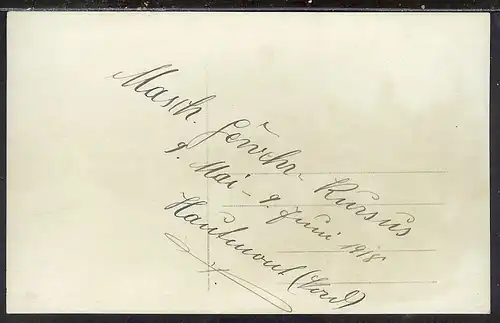 Masch. Gewehr-Kursus
9. Mai - 9. Juni 1918
Hautmont (Nord)